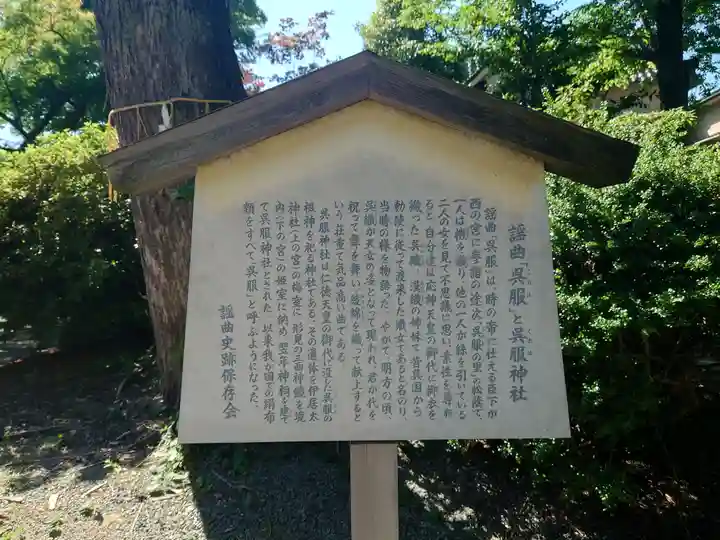 謡曲「呉服」と呉服神社
謡曲「呉服」は、時の帝に仕える臣下が
西の宮に参詣の途次、呉服の里の松蔭で、
一人は機を織り、他の一人が糸を引いている
二人の女を見て不思議に思い、素性を尋ね
ると、自分達は応神天皇の御代に御衣を
織った呉織、漢織の姉妹で、昔呉国から
勅使に従って渡来した織女であると名のり、
当時の様を物語った。やがて、明方の頃、
呉織が天女の姿となって現われ、君が代を
祝って舞を舞い、綾錦を織って献上すると
いう、荘重で気品高い曲である。
呉服神社は、仁徳天皇の御代に没した呉服の
祖神を祀る神社である。その遺体を伊居太
神社(上の宮)の梅室に、形見の三面神鏡を境
内(下の宮)の姫室に納め、翌年神祠を建て
て呉服神社とされた。以来、我が国での絹布
類をすべて「呉服」と呼ぶようになった。
謡曲史跡保存会